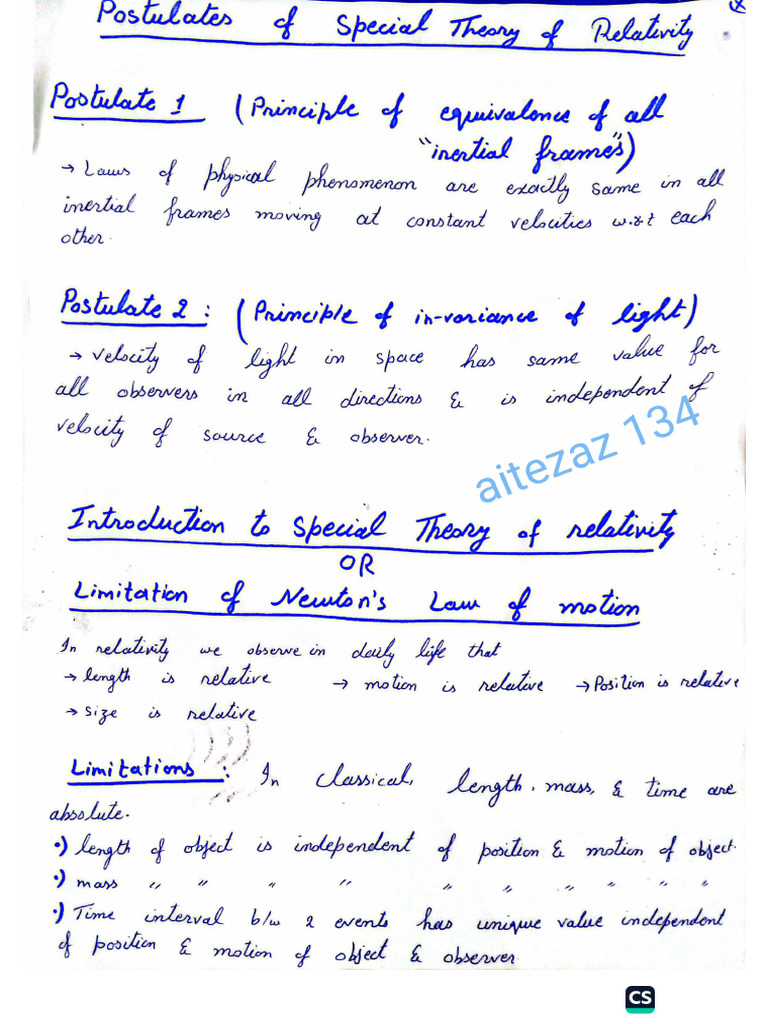 Postulates of Special Theory of Relativity
Postulate 1 (Principle of equivalence of all
"inertial frames")
→ Laws of physical phenomenon are exactly same in all
inertial frames moving at constant velocities w.r.t each
other.
Postulate 2 : (Principle of in-variance of light)
→ velocity of light in space has same value for
all observers in all directions & is independent of
velocity of source & observer.
aitezaz 134
Introduction to Special Theory of relativity
OR
Limitation of Newton's Law of motion
In relativity we observe in daily life that
→ length is relative → motion is relative → Position is relative
→ size is relative
Limitations : In classical, length, mass, & time are
absolute.
•) length of object is independent of position & motion of object.
•) mass " " " " " " " " " "
•) Time interval b/w 2 events has unique value independent
of position & motion of object & observer.
CS